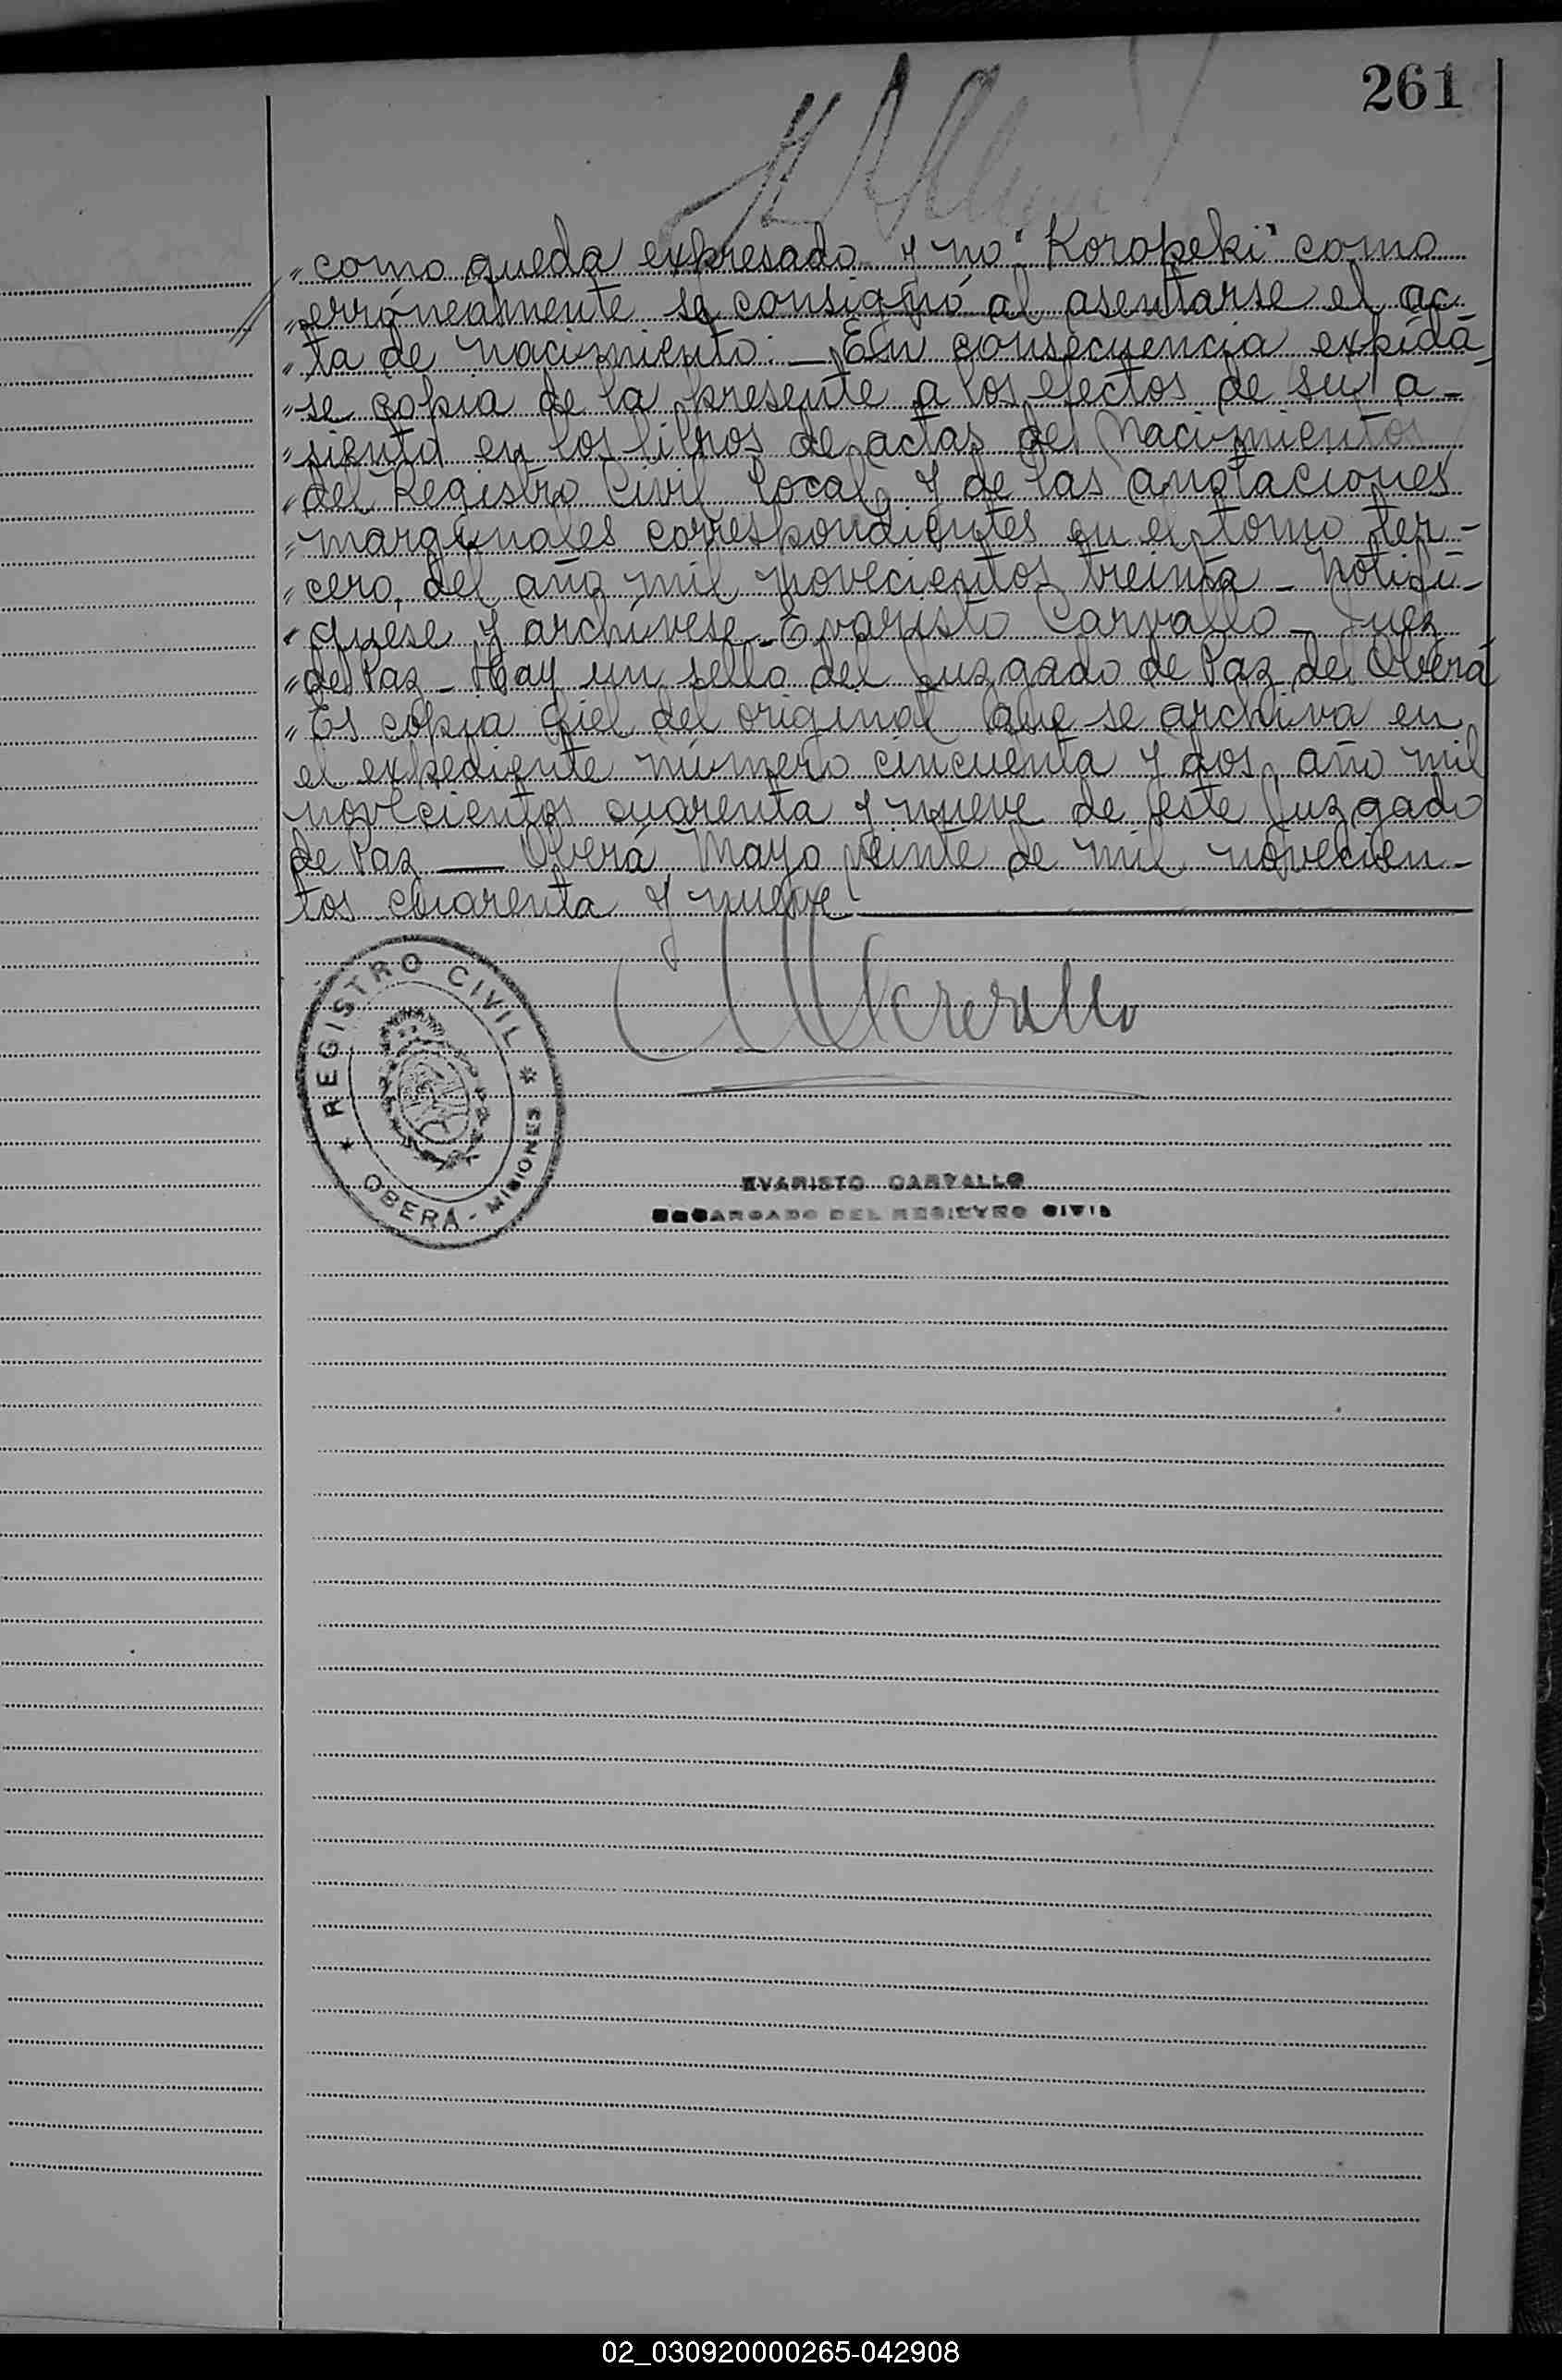 261
" como queda expresado y no "Koropeki" como
" erróneamente se consignó al asentarse el ac-
" ta de nacimiento. — En consecuencia expída-
" se copia de la presente a los efectos de su a-
" siento en los libros de actas de Nacimientos
" del Registro Civil local, y de las anotaciones
" marginales correspondientes en el tomo ter-
" cero, del año mil novecientos treinta - Notifí-
" quese y archívese - Evaristo Carvallo - Juez
" de Paz - Hay un sello del Juzgado de Paz de Oberá
" Es copia fiel del original que se archiva en
el expediente número cincuenta y dos, año mil
novecientos cuarenta y nueve de este Juzgado
de Paz — Oberá Mayo veinte de mil novecien-
tos cuarenta y nueve
REGISTRO CIVIL
OBERÁ - MISIONES
EVARISTO CARVALLO
ENCARGADO DEL REGISTRO CIVIL
02_030920000265-042908